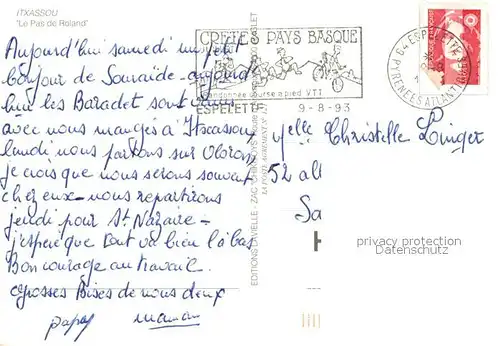 ITXASSOU
"Le Pas de Roland"
Aujourd'hui samedi un petit
bonjour de Souraide - aujourd
hui les Baradet sont venus
avec nous manger à Itxassou
lundi nous partons sur Oloron
je crois que nous serons souvent
chez eux - nous repartirons
jeudi pour St Nazaire -
j'espère que tout va bien là bas
Bon courage au travail.
Grosses Bises de nous deux
papa maman
CRETES PAYS BASQUE
Randonnée course a pied VTT
ESPELETTE 9-8-93
64 ESPELETTE
PYRENEES ATLANT
EDITIONS
Melle Christelle Linget
52 all
Sa
privacy protection
Datenschutz